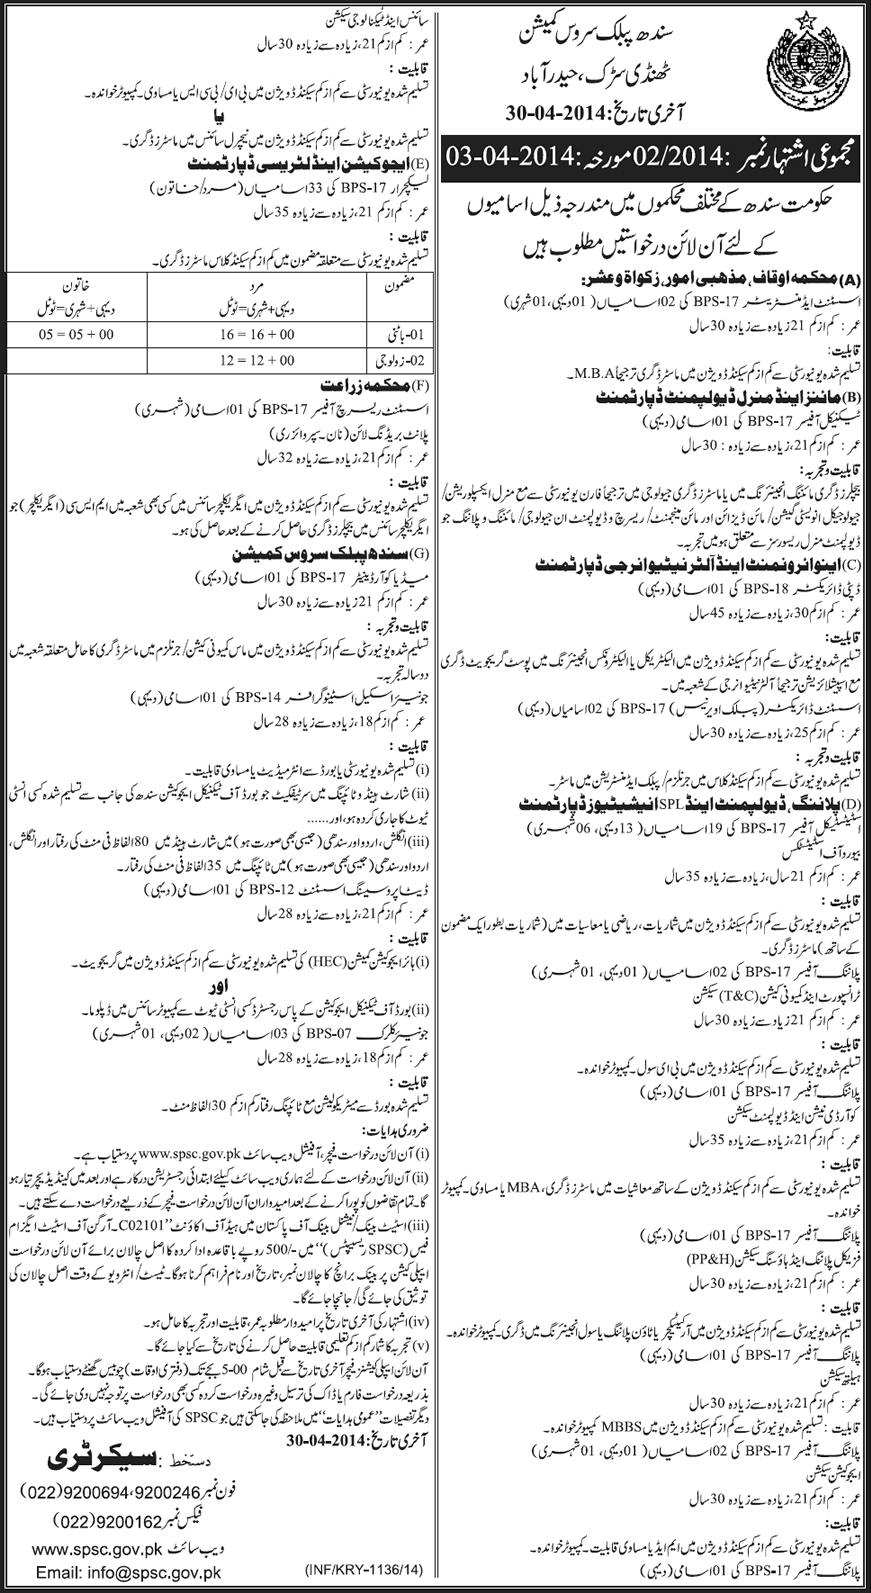 سندھ پبلک سروس کمیشن
ٹھنڈی سڑک، حیدرآباد
آخری تاریخ: 30-04-2014
مجموعی اشتہار نمبر: 02/2014 مورخہ: 03-04-2014
حکومت سندھ کے مختلف محکموں میں مندرجہ ذیل اسامیوں
کے لئے آن لائن درخواستیں مطلوب ہیں
(A) محکمہ اوقاف، مذہبی امور، زکواة و عشر:
اسسٹنٹ ایڈمنسٹریٹر BPS-17 کی 02 اسامیاں (01 دیہی، 01 شہری)
عمر: کم از کم 21 زیادہ سے زیادہ 30 سال
قابلیت:
تسلیم شدہ یونیورسٹی سے کم از کم سیکنڈ ڈویژن میں ماسٹر ڈگری ترجیحاً M.B.A۔
(B) مائنز اینڈ منرل ڈیولپمنٹ ڈپارٹمنٹ
ٹیکنیکل آفیسر BPS-17 کی 01 اسامی (دیہی)
عمر: کم از کم 21، زیادہ سے زیادہ: 30 سال
قابلیت و تجربہ:
بیچلرز ڈگری مائننگ انجینئرنگ میں یا ماسٹرز ڈگری جیولوجی میں ترجیحاً فارن یونیورسٹی سے مع منرل ایکسپلوریشن/
جیولوجیکل انویسٹی گیشن/ مائن ڈیزائن اور مائن مینجمنٹ/ ریسرچ و ڈیولپمنٹ ان جیولوجی/ مائننگ و پلاننگ جو
ڈیولپمنٹ منرل ریسورسز سے متعلق ہو میں تجربہ۔
(C) اینوائرونمنٹ اینڈ آلٹرنیٹیو انرجی ڈپارٹمنٹ
ڈپٹی ڈائریکٹر BPS-18 کی 01 اسامی (دیہی)
عمر: کم از کم 30، زیادہ سے زیادہ 45 سال
قابلیت:
تسلیم شدہ یونیورسٹی سے کم از کم سیکنڈ ڈویژن میں الیکٹریکل یا الیکٹرونکس انجینئرنگ میں پوسٹ گریجویٹ ڈگری
مع اسپیشلائزیشن ترجیحاً آلٹرنیٹیو انرجی کے شعبہ میں۔
اسسٹنٹ ڈائریکٹر (پبلک اویرنیس) BPS-17 کی 02 اسامیاں (دیہی)
عمر: کم از کم 25، زیادہ سے زیادہ 30 سال
قابلیت و تجربہ:
تسلیم شدہ یونیورسٹی سے کم از کم سیکنڈ کلاس میں جرنلزم/ پبلک ایڈمنسٹریشن میں ماسٹر۔
(D) پلاننگ، ڈیولپمنٹ اینڈ SPL انیشیٹیوز ڈپارٹمنٹ
اسٹیٹسٹیکل آفیسر BPS-17 کی 19 اسامیاں (13 دیہی، 06 شہری)
بیورو آف اسٹیٹسٹکس
عمر: کم از کم 21 سال، زیادہ سے زیادہ 35 سال
قابلیت:
تسلیم شدہ یونیورسٹی سے کم از کم سیکنڈ ڈویژن میں شماریات، ریاضی یا معاشیات میں (شماریات بطور ایک مضمون
کے ساتھ) ماسٹرز ڈگری۔
پلاننگ آفیسر BPS-17 کی 02 اسامیاں (01 دیہی، 01 شہری)
ٹرانسپورٹ اینڈ کمیونی کیشن (T&C) سیکشن
عمر: کم از کم 21 زیادہ سے زیادہ 30 سال
قابلیت:
تسلیم شدہ یونیورسٹی سے کم از کم سیکنڈ ڈویژن میں بی ای سول۔ کمپیوٹر خواندہ۔
پلاننگ آفیسر BPS-17 کی 01 اسامی (دیہی)
کوآرڈی نیشن اینڈ ڈیولپمنٹ سیکشن
عمر: کم از کم 21، زیادہ سے زیادہ 35 سال
قابلیت:
تسلیم شدہ یونیورسٹی سے کم از کم سیکنڈ ڈویژن کے ساتھ معاشیات میں ماسٹرز ڈگری، MBA یا مساوی۔ کمپیوٹر
خواندہ۔
پلاننگ آفیسر BPS-17 کی 01 اسامی (دیہی)
فزیکل پلاننگ اینڈ ہاؤسنگ سیکشن (PP&H)
عمر: کم از کم 21 زیادہ سے زیادہ 30 سال
قابلیت:
تسلیم شدہ یونیورسٹی سے کم از کم سیکنڈ ڈویژن میں آرکیٹیکچر یا ٹاؤن پلاننگ یا سول انجینئرنگ میں ڈگری۔ کمپیوٹر خواندہ۔
پلاننگ آفیسر BPS-17 کی 01 اسامی (دیہی)
ہیلتھ سیکشن
عمر: کم از کم 21 زیادہ سے زیادہ 30 سال
قابلیت: تسلیم شدہ یونیورسٹی سے کم از کم سیکنڈ ڈویژن میں MBBS کمپیوٹر خواندہ۔
پلاننگ آفیسر BPS-17 کی 02 اسامیاں (01 دیہی، 01 شہری)
ایجوکیشن سیکشن
عمر: کم از کم 21، زیادہ سے زیادہ 30 سال
قابلیت:
تسلیم شدہ یونیورسٹی سے کم از کم سیکنڈ ڈویژن میں ایم ایڈ یا مساوی قابلیت۔ کمپیوٹر خواندہ۔
پلاننگ آفیسر BPS-17 کی 01 اسامی (دیہی)
سائنس اینڈ ٹیکنالوجی سیکشن
عمر: کم از کم 21، زیادہ سے زیادہ 30 سال
قابلیت:
تسلیم شدہ یونیورسٹی سے کم از کم سیکنڈ ڈویژن میں بی ای/ بی سی ایس یا مساوی۔ کمپیوٹر خواندہ۔
یا
تسلیم شدہ یونیورسٹی سے کم از کم سیکنڈ ڈویژن میں نیچرل سائنس میں ماسٹرز ڈگری۔
(E) ایجوکیشن اینڈ لٹریسی ڈپارٹمنٹ
لیکچرار BPS-17 کی 33 اسامیاں (مرد/خاتون)
عمر: کم از کم 21، زیادہ سے زیادہ 35 سال
قابلیت:
تسلیم شدہ یونیورسٹی سے متعلقہ مضمون میں کم از کم سیکنڈ کلاس ماسٹرز ڈگری۔
مضمون مرد خاتون
دیہی+شہری=ٹوٹل دیہی+شہری=ٹوٹل
01-باٹنی 16 = 16 + 00 05 = 05 + 00
02-زولوجی 12 = 12 + 00
(F) محکمہ زراعت
اسسٹنٹ ریسرچ آفیسر BPS-17 کی 01 اسامی (شہری)
پلانٹ بریڈنگ لائن (نان۔سپروائزری)
عمر: کم از کم 21، زیادہ سے زیادہ 32 سال
قابلیت:
تسلیم شدہ یونیورسٹی سے کم از کم سیکنڈ ڈویژن میں ایگریکلچر سائنس میں کسی بھی شعبہ میں ایم ایس سی (ایگریکلچر) جو
ایگریکلچر سائنس میں بیچلرز ڈگری حاصل کرنے کے بعد حاصل کی ہو۔
(G) سندھ پبلک سروس کمیشن
میڈیا کوآرڈینیٹر BPS-17 کی 01 اسامی (دیہی)
عمر: کم از کم 21 زیادہ سے زیادہ 30 سال
قابلیت و تجربہ:
تسلیم شدہ یونیورسٹی سے کم از کم سیکنڈ ڈویژن میں ماس کمیونی کیشن/ جرنلزم میں ماسٹر ڈگری کا حامل متعلقہ شعبہ میں
دو سالہ تجربہ۔
جونیئر اسکیل اسٹینوگرافر BPS-14 کی 01 اسامی (دیہی)
عمر: کم از کم 18، زیادہ سے زیادہ 28 سال
قابلیت:
(i) تسلیم شدہ یونیورسٹی یا بورڈ سے انٹرمیڈیٹ یا مساوی قابلیت۔
(ii) شارٹ ہینڈ و ٹائپنگ میں سرٹیفکیٹ جو بورڈ آف ٹیکنیکل ایجوکیشن سندھ کی جانب سے تسلیم شدہ کسی انسٹی
ٹیوٹ کا جاری کردہ ہو، اور......
(iii) انگلش، اردو اور سندھی (جیسی بھی صورت ہو) میں شارٹ ہینڈ میں 80 الفاظ فی منٹ کی رفتار اور انگلش،
اردو اور سندھی (جیسی بھی صورت ہو) میں ٹائپنگ میں 35 الفاظ فی منٹ کی رفتار۔
ڈیٹا پروسیسنگ اسسٹنٹ BPS-12 کی 01 اسامی (دیہی)
عمر: کم از کم 21، زیادہ سے زیادہ 28 سال
قابلیت:
(i) ہائر ایجوکیشن کمیشن (HEC) کی تسلیم شدہ یونیورسٹی سے کم از کم سیکنڈ ڈویژن میں گریجویٹ۔
اور
(ii) بورڈ آف ٹیکنیکل ایجوکیشن کے پاس رجسٹرڈ کسی انسٹی ٹیوٹ سے کمپیوٹر سائنس میں ڈپلوما۔
جونیئر کلرک BPS-07 کی 03 اسامیاں (02 دیہی، 01 شہری)
عمر: کم از کم 18، زیادہ سے زیادہ 28 سال
قابلیت:
تسلیم شدہ بورڈ سے میٹریکولیشن مع ٹائپنگ رفتار کم از کم 30 الفاظ منٹ۔
ضروری ہدایات:
(i) آن لائن درخواست فیچر، آفیشل ویب سائٹ www.spsc.gov.pk پر دستیاب ہے۔
(ii) آن لائن درخواست کے لئے ہماری ویب سائٹ کیلئے ابتدائی رجسٹریشن درکار ہے اور بعد میں کینڈیڈیچر تیار ہو
گا۔ تمام تقاضوں کو پورا کرنے کے بعد امیدواران آن لائن درخواست فیچر کے ذریعے درخواست دے سکتے ہیں۔
(iii) اسٹیٹ بینک/ نیشنل بینک آف پاکستان میں ہیڈ آف اکاؤنٹ "C02101۔آرگن آف اسٹیٹ ایگزام
فیس (SPSC ریسیپٹس)" میں -/500 روپے باقاعدہ ادا کردہ کا اصل چالان برائے آن لائن درخواست
ایپلی کیشن پر بینک برانچ کا چالان نمبر، تاریخ اور نام فراہم کرنا ہوگا۔ ٹیسٹ/ انٹرویو کے وقت اصل چالان کی
توثیق کی جائے گی/ جانچا جائے گا۔
(iv) اشتہار کی آخری تاریخ پر امیدوار مطلوبہ عمر، قابلیت اور تجربہ کا حامل ہو۔
(v) تجربہ کا شمار کم از کم تعلیمی قابلیت حاصل کرنے کی تاریخ سے کیا جائے گا۔
آن لائن ایپلی کیشنز فیچر آخری تاریخ سے قبل شام 5-00 بجے تک (دفتری اوقات) چوبیس گھنٹے دستیاب ہوگا۔
بذریعہ درخواست فارم یا ڈاک کی ترسیل وغیرہ درخواست کردہ کسی بھی درخواست پر توجہ نہیں دی جائے گی۔
دیگر تفصیلات "عمومی ہدایات" میں ملاحظہ کی جاسکتی ہیں جو SPSC کی آفیشل ویب سائٹ پر دستیاب ہیں۔
آخری تاریخ: 30-04-2014
دستخط: سیکرٹری
فون نمبر 9200246، 9200694(022)
فیکس نمبر 9200162(022)
ویب سائٹ www.spsc.gov.pk
Email: info@spsc.gov.pk
(INF/KRY-1136/14)